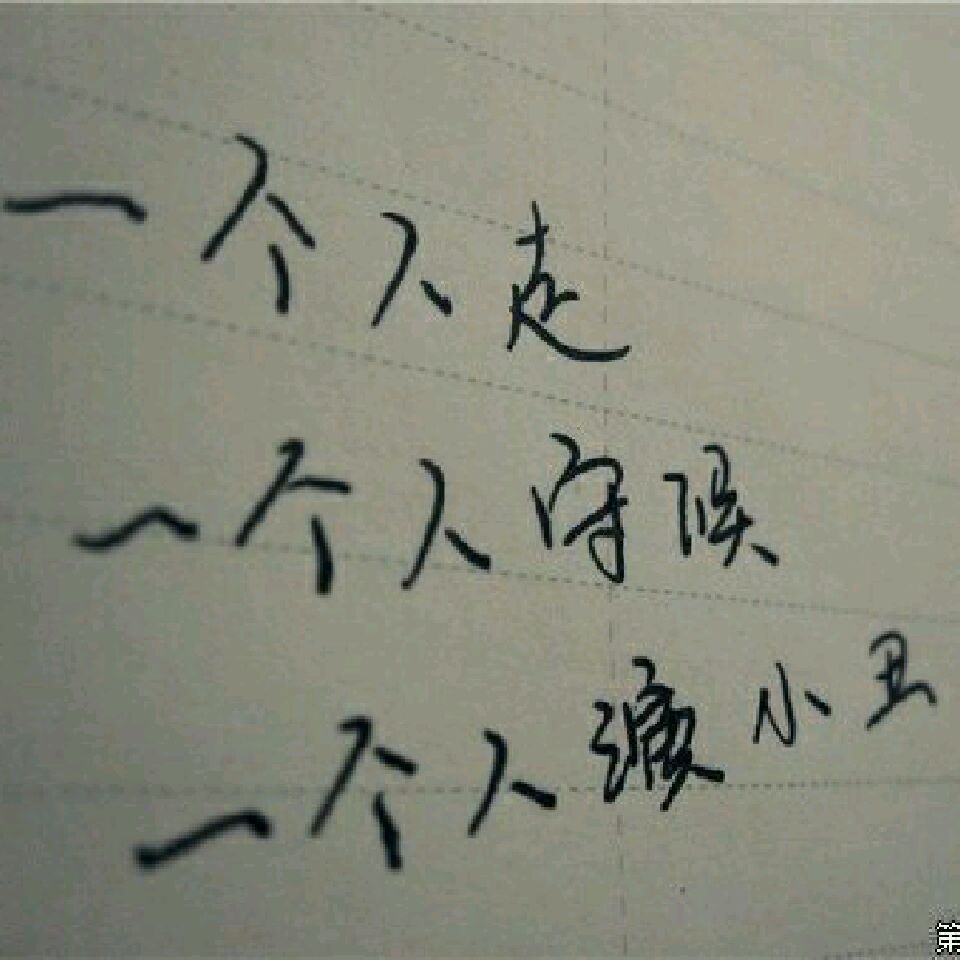 一个人走
一个人守候
一个人演小丑
第